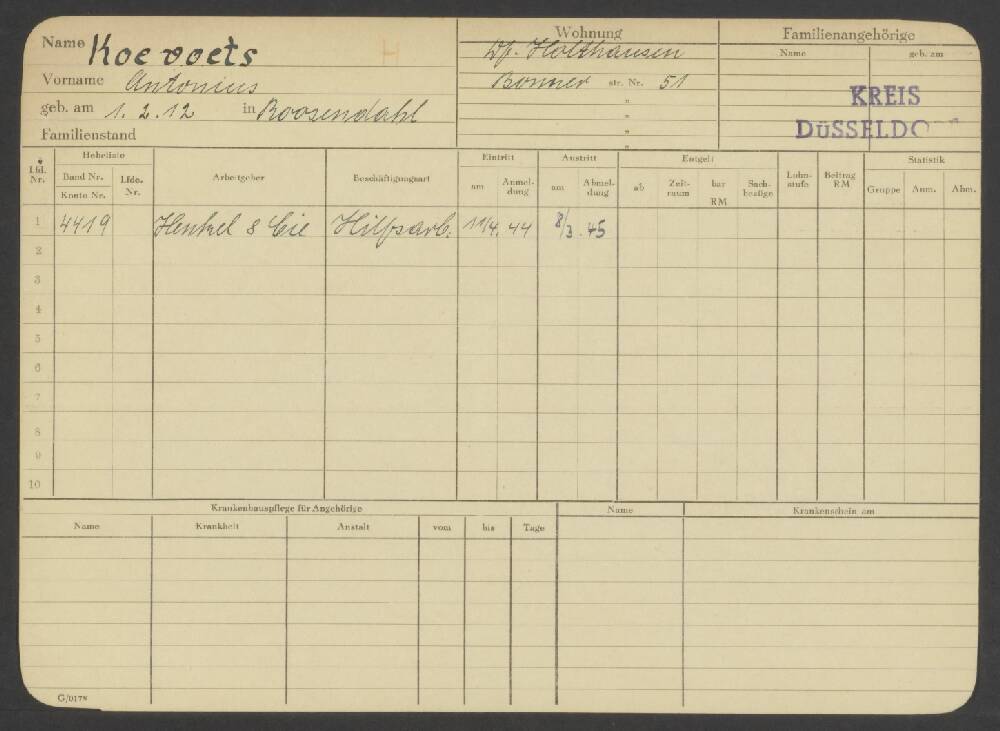 Name Koevoets H
Vorname Antonius
geb. am 1.2.12 in Roosendahl
Familienstand
Wohnung
Df. Holthausen
Bonner str. Nr. 51
"
"
"
"
Familienangehörige
Name geb. am
KREIS
DÜSSELDO
Lfd. Nr. Hebeliste Arbeitgeber Beschäftigungsart Eintritt Austritt Entgelt Lohn- stufe Beitrag RM Statistik
Band Nr. Lfde. Nr. am Anmel- dung am Abmel- dung ab Zeit- raum bar RM Sach- bezüge Gruppe Anm. Abm.
Konto Nr.
1 4419 Henkel & Cie Hilfsarb. 11/4.44 8/3.45
2
3
4
5
6
7
8
9
10
Krankenhauspflege für Angehörige
Name Krankheit Anstalt vom bis Tage
Name Krankenschein am
G/0178